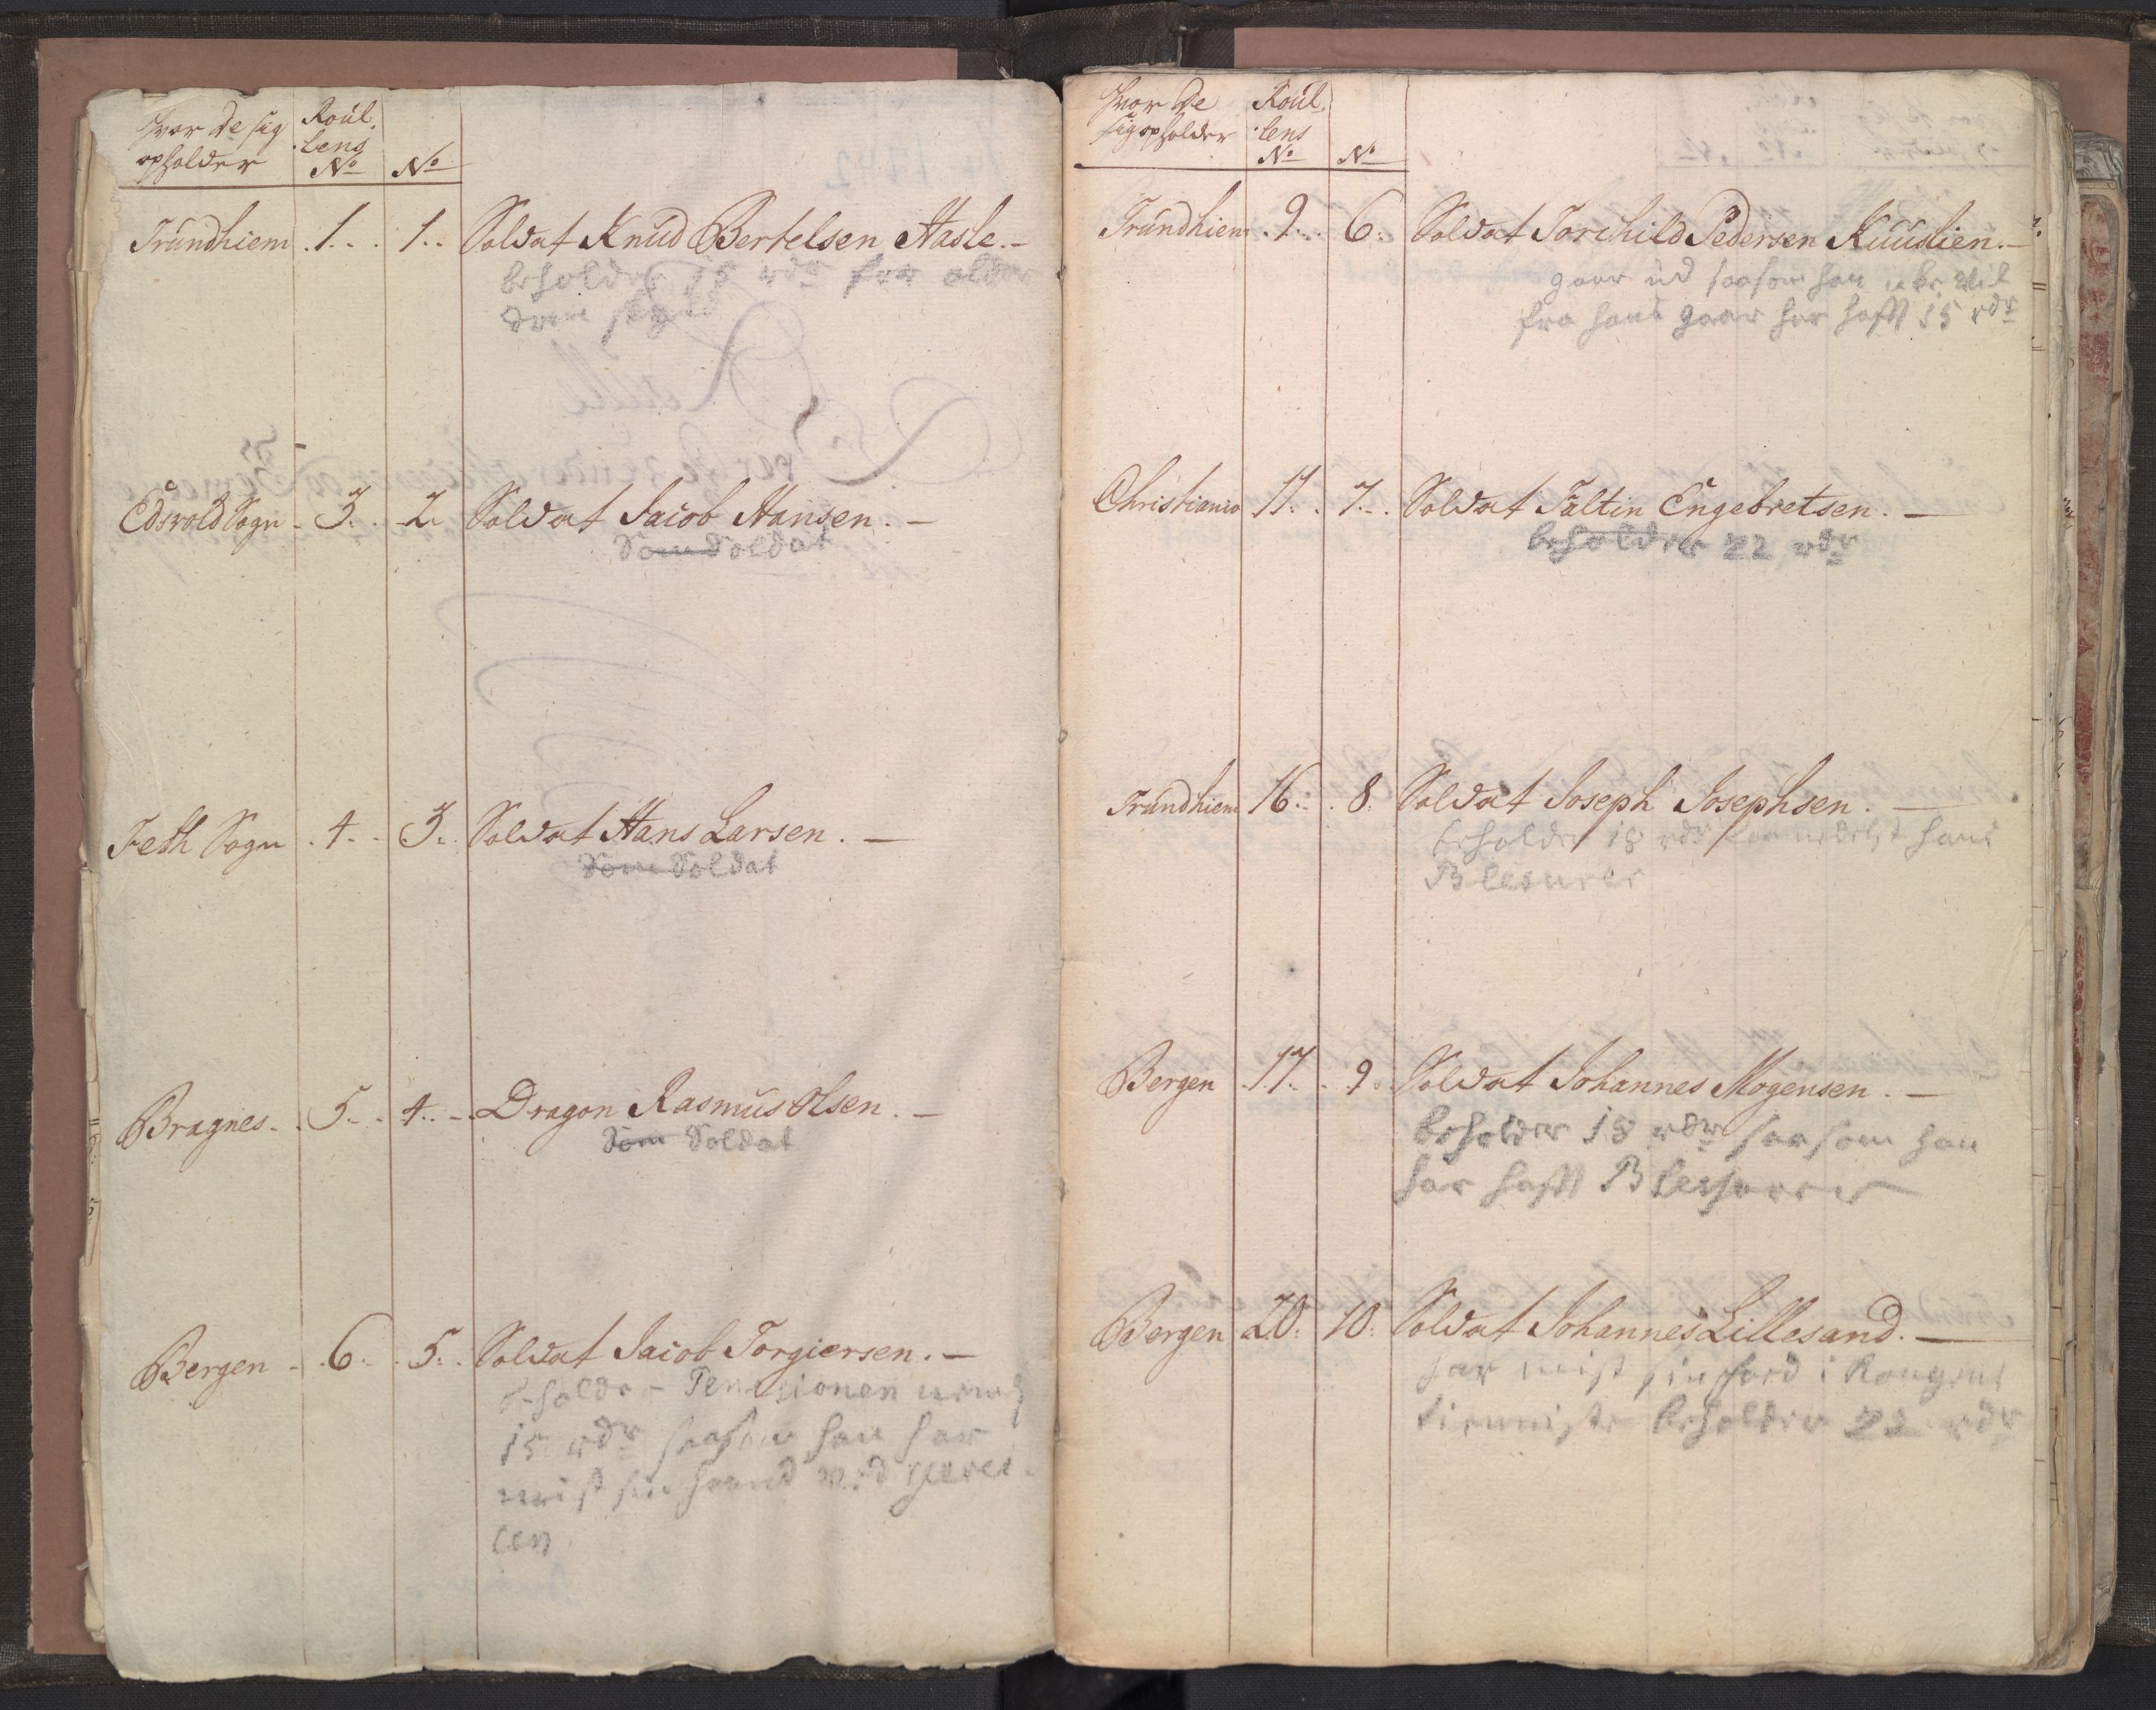 Hvor de sig Roul.
opholder lens
No No
Trundhiem 1. 1. Soldat Knud Bertelsen Hasle.
beholder 15 rdr for alder
Edsvold Sogn 3. 2. Soldat Jacob Hansen.
Som Soldat
Feth Sogn 4. 3. Soldat Hans Larsen.
Som Soldat
Bragnes 5. 4. Dragon Rasmus Olsen.
Som Soldat
Bergen 6. 5. Soldat Jacob Torgiersen.
beholder Pensionen
15 rdr saasom han har
mist sin haand ved
Hvor de Roul.
sig opholder lens
No No
Trundhiem 9. 6. Soldat Torchild Pedersen Kuuslien.
gaar ud saasom han vil
fra hans gaar har hafft 15 rdr
Christiania 11. 7. Soldat Faltin Engebretsen.
beholder 22 rdr
Trundhiem 16. 8. Soldat Joseph Josephsen.
beholder 18 rdr formedelst hans
Blesurer
Bergen 17. 9. Soldat Johannes Mogensen.
beholder 18 rdr saasom han
har hafft
Bergen 20. 10. Soldat Johannes Lillesand.
har mist sin i Kongens
tienniste beholder 22 rdr